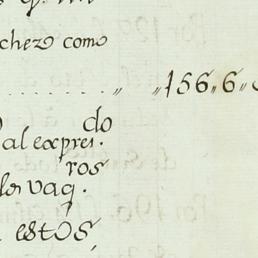 chezo como
" "156,,6,,
do
al expres.
ros
los vaq.
estos,